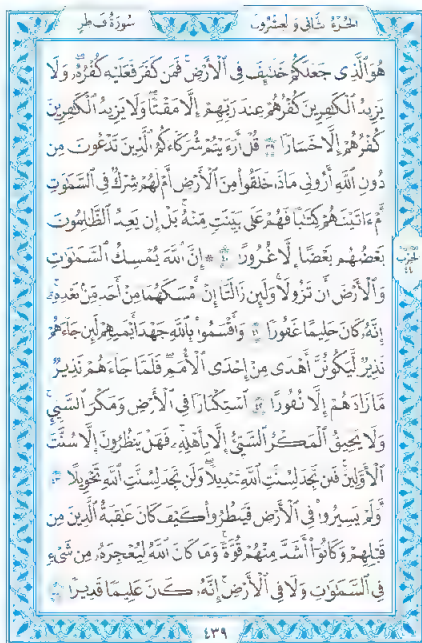 الجزء الثاني والعشرون
سورة فاطر
هُوَ ٱلَّذِى جَعَلَكُمْ خَلَٰٓئِفَ فِى ٱلْأَرْضِ فَمَن كَفَرَ فَعَلَيْهِ كُفْرُهُۥ وَلَا
يَزِيدُ ٱلْكَٰفِرِينَ كُفْرُهُمْ عِندَ رَبِّهِمْ إِلَّا مَقْتًا وَلَا يَزِيدُ ٱلْكَٰفِرِينَ
كُفْرُهُمْ إِلَّا خَسَارًا ٣٩ قُلْ أَرَءَيْتُمْ شُرَكَآءَكُمُ ٱلَّذِينَ تَدْعُونَ مِن
دُونِ ٱللَّهِ أَرُونِى مَاذَا خَلَقُوا۟ مِنَ ٱلْأَرْضِ أَمْ لَهُمْ شِرْكٌ فِى ٱلسَّمَٰوَٰتِ
أَمْ ءَاتَيْنَٰهُمْ كِتَٰبًا فَهُمْ عَلَىٰ بَيِّنَتٍ مِّنْهُ بَلْ إِن يَعِدُ ٱلظَّٰلِمُونَ
بَعْضُهُم بَعْضًا إِلَّا غُرُورًا ٤٠ ۞ إِنَّ ٱللَّهَ يُمْسِكُ ٱلسَّمَٰوَٰتِ
وَٱلْأَرْضَ أَن تَزُولَا وَلَئِن زَالَتَآ إِنْ أَمْسَكَهُمَا مِنْ أَحَدٍ مِّنۢ بَعْدِهِۦٓ
إِنَّهُۥ كَانَ حَلِيمًا غَفُورًا ٤١ وَأَقْسَمُوا۟ بِٱللَّهِ جَهْدَ أَيْمَٰنِهِمْ لَئِن جَآءَهُمْ
نَذِيرٌ لَّيَكُونُنَّ أَهْدَىٰ مِنْ إِحْدَى ٱلْأُمَمِ فَلَمَّا جَآءَهُمْ نَذِيرٌ
مَّا زَادَهُمْ إِلَّا نُفُورًا ٤٢ ٱسْتِكْبَارًا فِى ٱلْأَرْضِ وَمَكْرَ ٱلسَّيِّئِ
وَلَا يَحِيقُ ٱلْمَكْرُ ٱلسَّيِّئُ إِلَّا بِأَهْلِهِۦ فَهَلْ يَنظُرُونَ إِلَّا سُنَّتَ
ٱلْأَوَّلِينَ فَلَن تَجِدَ لِسُنَّتِ ٱللَّهِ تَبْدِيلًا وَلَن تَجِدَ لِسُنَّتِ ٱللَّهِ تَحْوِيلًا ٤٣
أَوَلَمْ يَسِيرُوا۟ فِى ٱلْأَرْضِ فَيَنظُرُوا۟ كَيْفَ كَانَ عَٰقِبَةُ ٱلَّذِينَ مِن
قَبْلِهِمْ وَكَانُوٓا۟ أَشَدَّ مِنْهُمْ قُوَّةً وَمَا كَانَ ٱللَّهُ لِيُعْجِزَهُۥ مِن شَىْءٍ
فِى ٱلسَّمَٰوَٰتِ وَلَا فِى ٱلْأَرْضِ إِنَّهُۥ كَانَ عَلِيمًا قَدِيرًا ٤٤
الحزب
٤٤
٤٣٩